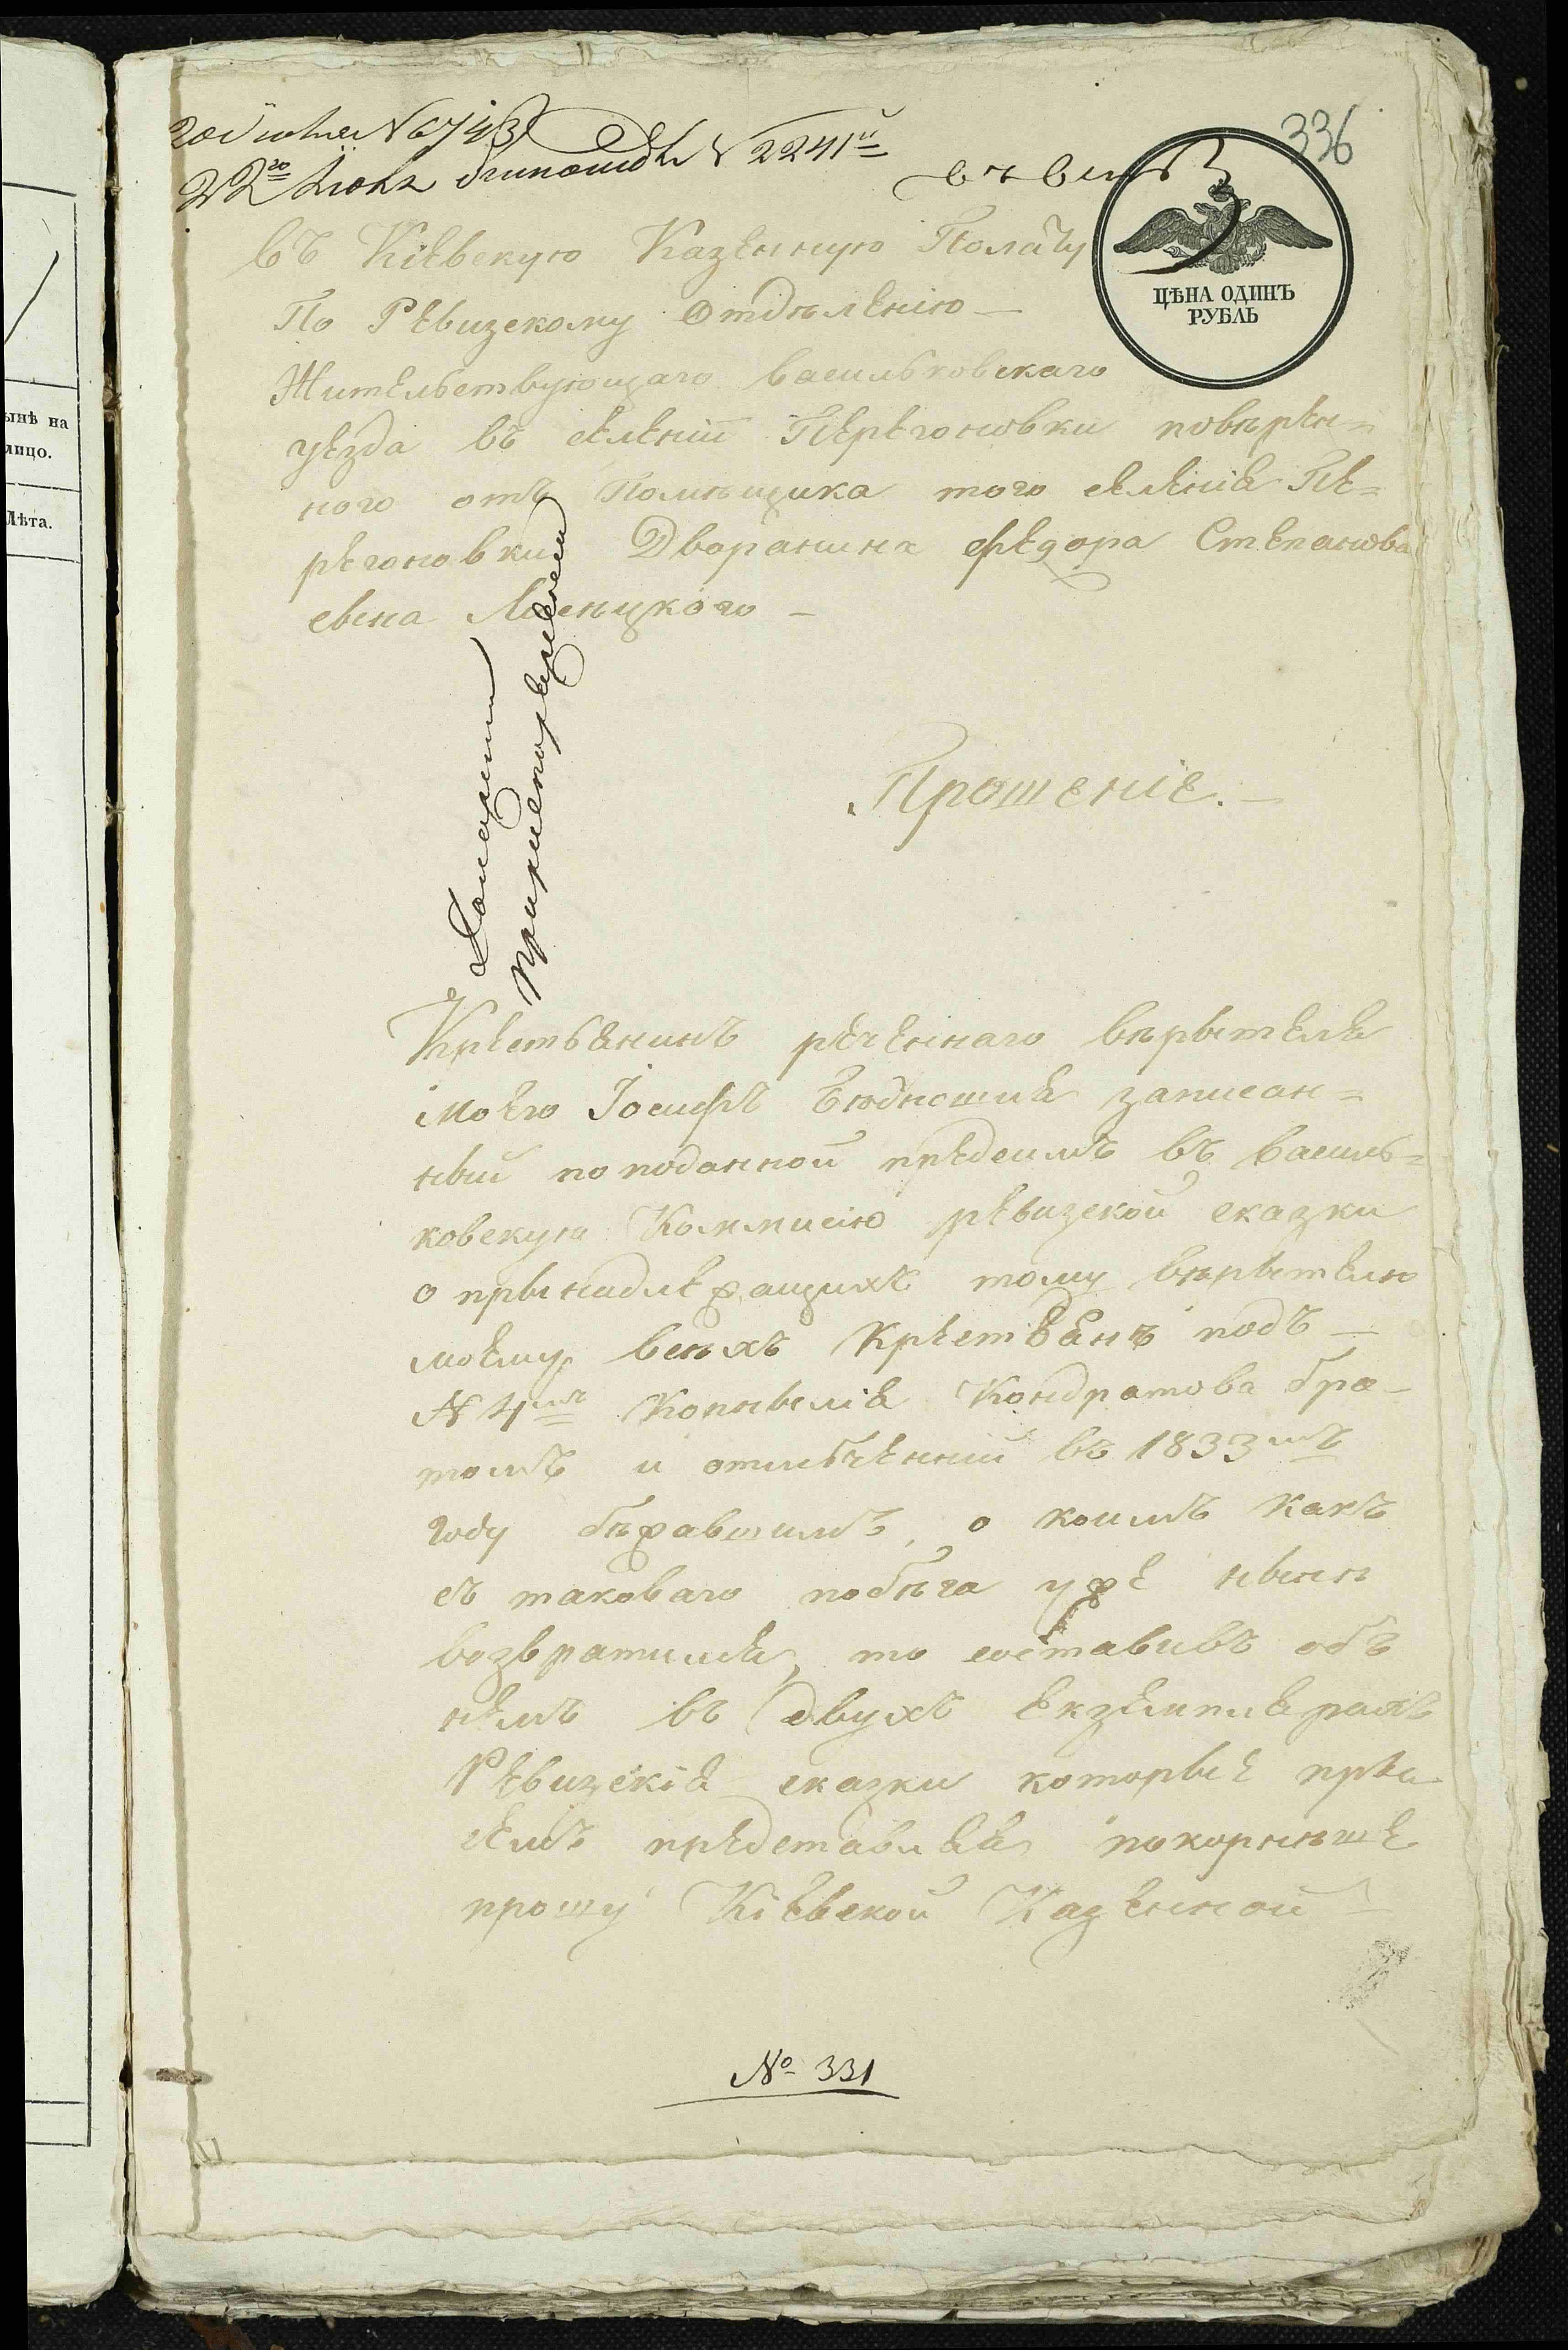 336
20 июня № 6743
22го Июня № 2241й
ЦѢНА ОДИНЪ
РУБЛЬ
въ Кіевскую Казенную Полату
По Ревизскому Отдѣленію —
Жительствующаго васильковскаго
уезда въ селеніи Перегоновки повѣрен=
ного отъ Помѣщика того селенія Пе=
регоновки Дворанина Федора Степанова
сына
Прошеніе. —
Крестьянинъ реченнаго вѣрытеля
моего Іосифъ записан=
ный по поданной предсимъ въ василь=
ковскую Коммисію ревизской сказки
о прынадлежащихъ тому вѣрытелю
моему всѣхъ Крестьянъ подъ —
N 4мъ Кондратова бра-
томъ и отмѣченный въ 1833мъ
году бѣжавшимъ, о коимъ какъ
съ таковаго побѣга уже нынѣ
возвратился, то составивъ объ
немъ въ двухъ екземплярахъ
Ревизскія сказки которые при
семъ представляя покорнѣше
прошу Кіевской Казенной —
№ 331
ынѣ на
лицо.
Лѣта.